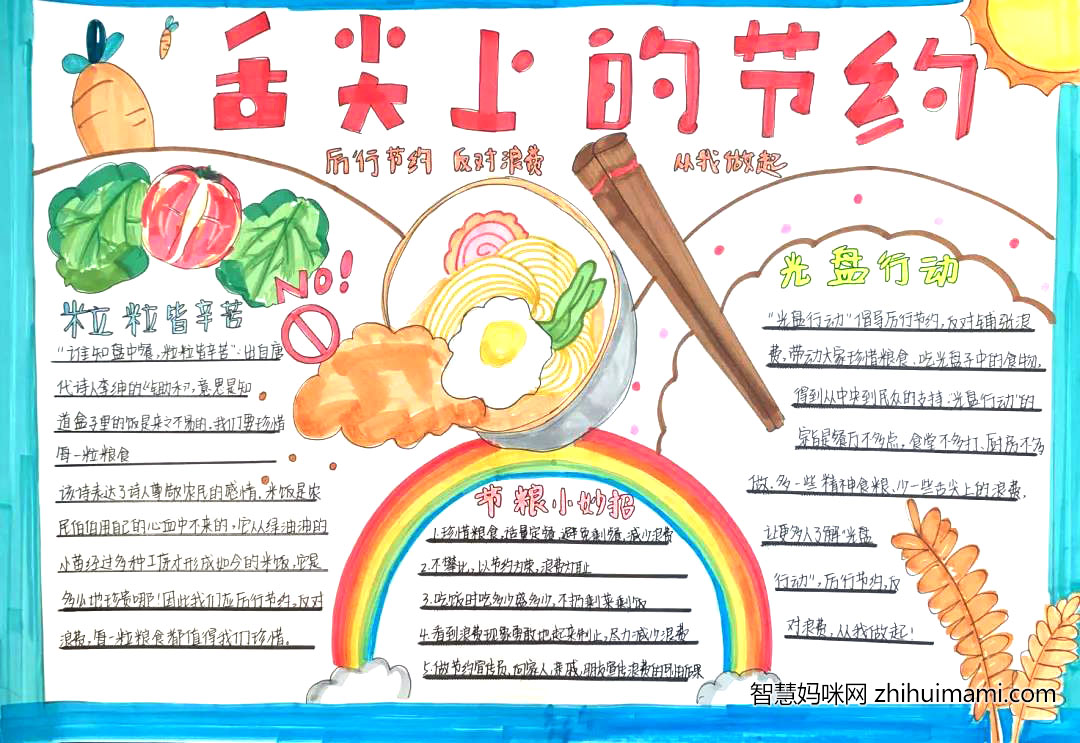 舌尖上的节约
厉行节约 反对浪费 从我做起
NO!
粒粒皆辛苦
“谁知盘中餐,粒粒皆辛苦”出自唐
代诗人李绅的《锄禾》,意思是知
道盘子里的饭是来之不易的,我们要珍惜
每一粒粮食
该诗表达了诗人尊敬农民的感情。米饭是农
民伯伯用自己的心血中不来的,它从绿油油的
小苗经过多种工序才形成如今的米饭,它是
多么地珍贵哪!因此我们应厉行节约,反对
浪费,每一粒粮食都值得我们珍惜。
节粮小妙招
1.珍惜粮食,适量定餐,避免剩餐,减少浪费
2.不攀比,以节约为荣,浪费为耻
3.吃饭时吃多少盛多少,不扔剩菜剩饭
4.看到浪费现象勇敢地起来制止,尽力减少浪费
5.做节约宣传员,向家人,亲戚,朋友宣传浪费的可怕后果
光盘行动
“光盘行动”倡导厉行节约,反对铺张浪
费,带动大家珍惜粮食、吃光盘子中的食物,
得到从中央到民众的支持,光盘行动”的
宗旨是餐厅不多点,食堂不多打、厨房不多
做。多一些精神食粮、少一些舌尖上的浪费,
让更多人了解“光盘
行动”,厉行节约,反
对浪费,从我做起!
智慧妈咪网 zhihuimami.com